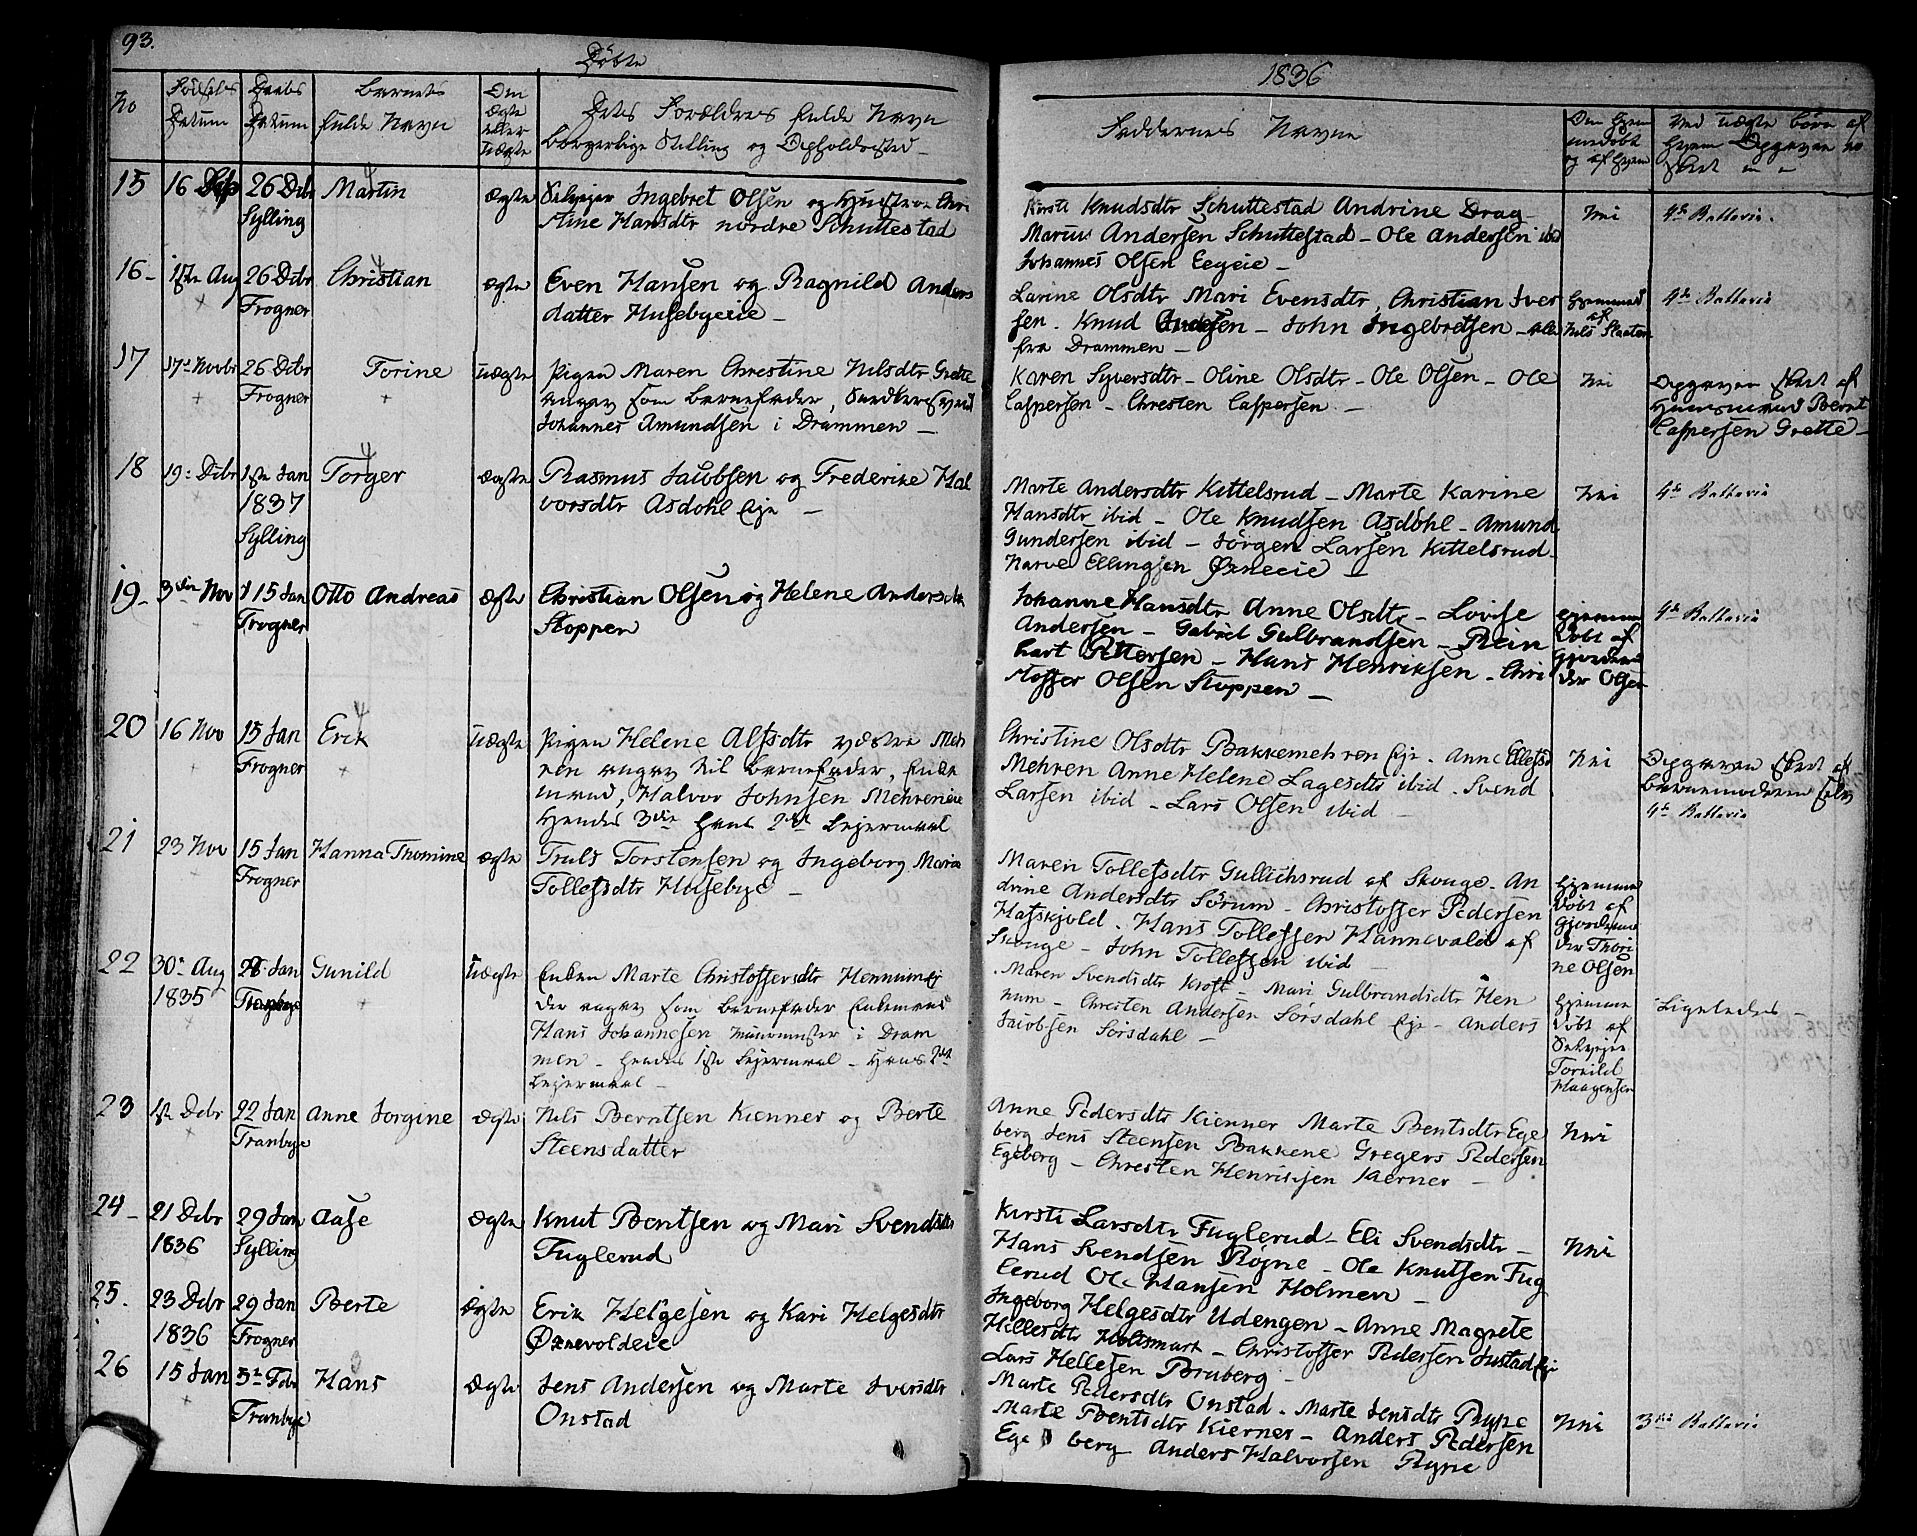 93.
Döbte
1836
No
Födsels Datum
Daabs Datum
Barnets fulde Navn
Om ægte eller uægte
Dets Forældres fulde Navn
borgerlige Stilling og Opholdssted
Faddernes Navne
Om hjemmedöbt og af hvem
Ved uægte börn af hvem Opgaven er skeet
15
16
26 Dcbr Sylling
Martin
ægte
Selveier Ingebret Olsen og Hustrue Chri
stine Hansdtr nordre Schuttestad
Kirsti Knudsdtr Schuttestad Andrine Drag
Marius Andersen Schuttestad - Ole Andersen ibid
Johannes Olsen Eegeie -
Nei
16 -
1ste Aug
26 Dcbr Frogner
Christian
ægte
Even Hansen og Ragnild Anders
datter Husebyeeie -
Larine Olsdtr Mari Evensdtr, Christian Iver
sen. Knud Andersen - John Ingebretsen - alle
fra Drammen -
Hjemmed af Nels Staaten
17
17de Novbr
26 Dcbr Frogner
Torine
uægte
Pigen Maren Christine Nilsdtr Grette
angav som Barnefader, Snedkersvend
Johannes Amundsen i Drammen -
Karen Syversdtr - Oline Olsdtr - Ole Olsen - Ole
Caspersen - Christen Caspersen -
Nei
Opgaven skeet af
Huusmand Bernt
Caspersen Grette -
18
19 Dcbr
1ste Jan 1837 Sylling
Torger
ægte
Rasmus Jacobsen og Frederike Hal
vorsdtr Asdohl Eje -
Marte Andersdtr Kittelsrud - Marte Karine
Hansdtr ibid - Ole Knudsen Asdöhl - Amund
Gundersen ibid - Jörgen Larsen Kittelsrud
Narve Ellingsen Ørneeie -
Nei
19 -
3die Nov
15 Jan Frogner
Otto Andreas
ægte
Christian Olsen og Helene Andersdtr
Stoppen
Johanne Hansdtr Anne Olsdtr - Lovise
Andersen - Gabriel Gulbrandsen - Rein
hart Pettersen - Hans Henriksen - Chri
stoffer Olsen Stoppen -
hjemme döbt af Gjordemoder Olsen
20
16 Nov
15 Jan Frogner
Erik
uægte
Pigen Helene Alfsdtr vestre Meh
ren angav til Barnefader, Enke
mand, Halvor Johnsen Mehreneie
Hendes 3die hans 2det Lejermaal
Christine Olsdtr Bakkemehren Eje. Anne Ellefsd
Mehren Anne Helene Lagesdtr ibid. Svend
Larsen ibid - Lars Olsen ibid -
Nei
Opgaven skeet af
Barnemoderen selv
21
23 Nov
15 Jan Frogner
Hanna Thomine
ægte
Truls Torstensen og Ingeborg Marie
Tollefsdtr Husebye -
Maren Tollefsdtr Gullichsrud af Skouge - An
drine Andersdtr Sörum - Christoffer Pedersen
Hafskjold. Hans Tollefsen Hannevald af
Skouge - John Tollefsen ibid -
Hjemme döbt af Gjordemo der Thori ne Olsen
22
30te Aug 1835
Jan Tranbye
Gunild
uægte
Enken Marte Christoffersdtr Hennumej
der angav som Barnefader Enkemand
Hans Johannesen Muurmester i Dram
men - hendes 1ste Lejermaal - Hans 2det
Lejermaal -
Maren Svendsdtr Kroft - Mari Gulbrandsdtr Hen
num - Christen Andersen Sörsdahl Eje - Anders
Jacobsen Sörsdahl -
Hjemme döbt af Selveier Torkild Haagensen
Ligeledes -
23
1ste Dcbr
22 Jan Tranbye
Anne Jorgine
ægte
Nils Berntsen Kienner og Berte
Steensdatter
Anne Pedersdtr Kienner Marte Bentsdtr Ege
berg Jens Steensen Bakkene Gregers Pedersen
Egeberg - Christen Henriksen Kierner -
Nei
24 -
21 Dcbr 1836
29 Jan Sylling
Aase
ægte
Knut Bentsen og Mari Svendsdtr
Fuglerud
Kirsti Larsdtr Fuglerud - Eli Svendsdtr -
Hans Svendsen Röjne - Ole Knutsen Fug
lerud Ole Hansen Holmen -
Nei
25.
23 Dcbr 1836
29 Jan Frogner
Berte
ægte
Erik Helgesen og Kari Helgesdtr
Ørnevoldeie
Ingeborg Helgesdtr Udengen - Anne Magrete
Hillesdtr Holtsmark - Christoffer Pedersen Justad Eje
Lars Hellesen Bruberg -
26
15 Jan
5te Febr Tranbye
Hans
ægte
Jens Andersen og Marte Iversdtr
Onstad
Marte Pedersdtr Onstad - Marte Jensdtr Rype
Marte Bentsdtr Kierner - Anders Pedersen
Egeberg Anders Halvorsen Rype
Nei